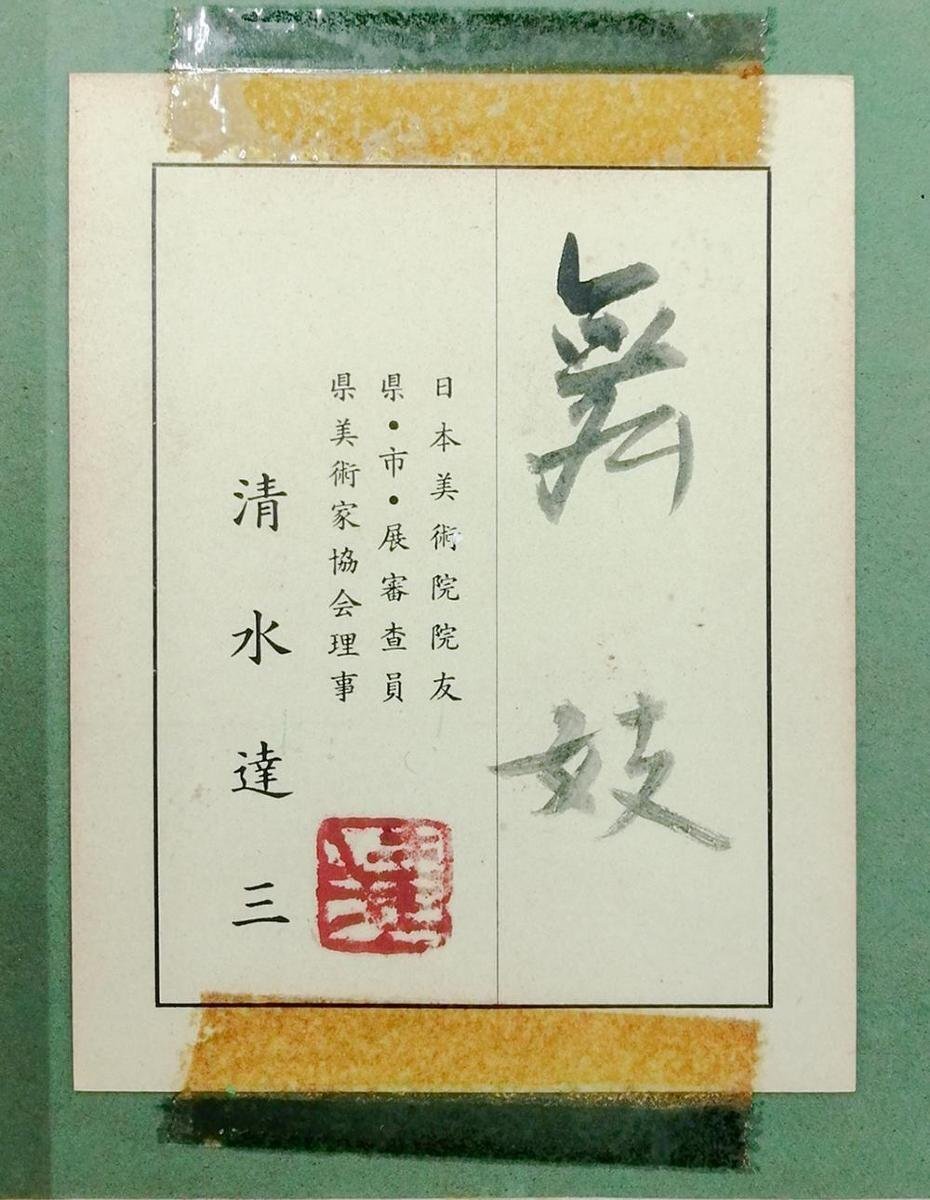 舞妓
日本美術院院友
県・市・展審査員
県美術家協会理事
清水達三